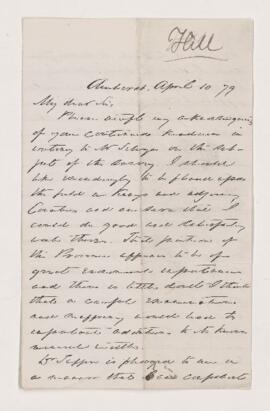 Hall
Amherst, April 10 79
My dear Sir,
Please accept my acknowledgments
of your continued kindness in
writing to Mr Selwyn on the sub-
ject of the Survey. I should
like exceedingly to be placed upon
the field in Kings and adjoining
Counties and am sure that I
could do good and satisfactory
work there. That portion of
the Province appears to be of
great economical importance
and there is little doubt I think
that a careful examination
and mapping would lead to
important additions to its known
mineral wealth.
is pleased to
a manner that